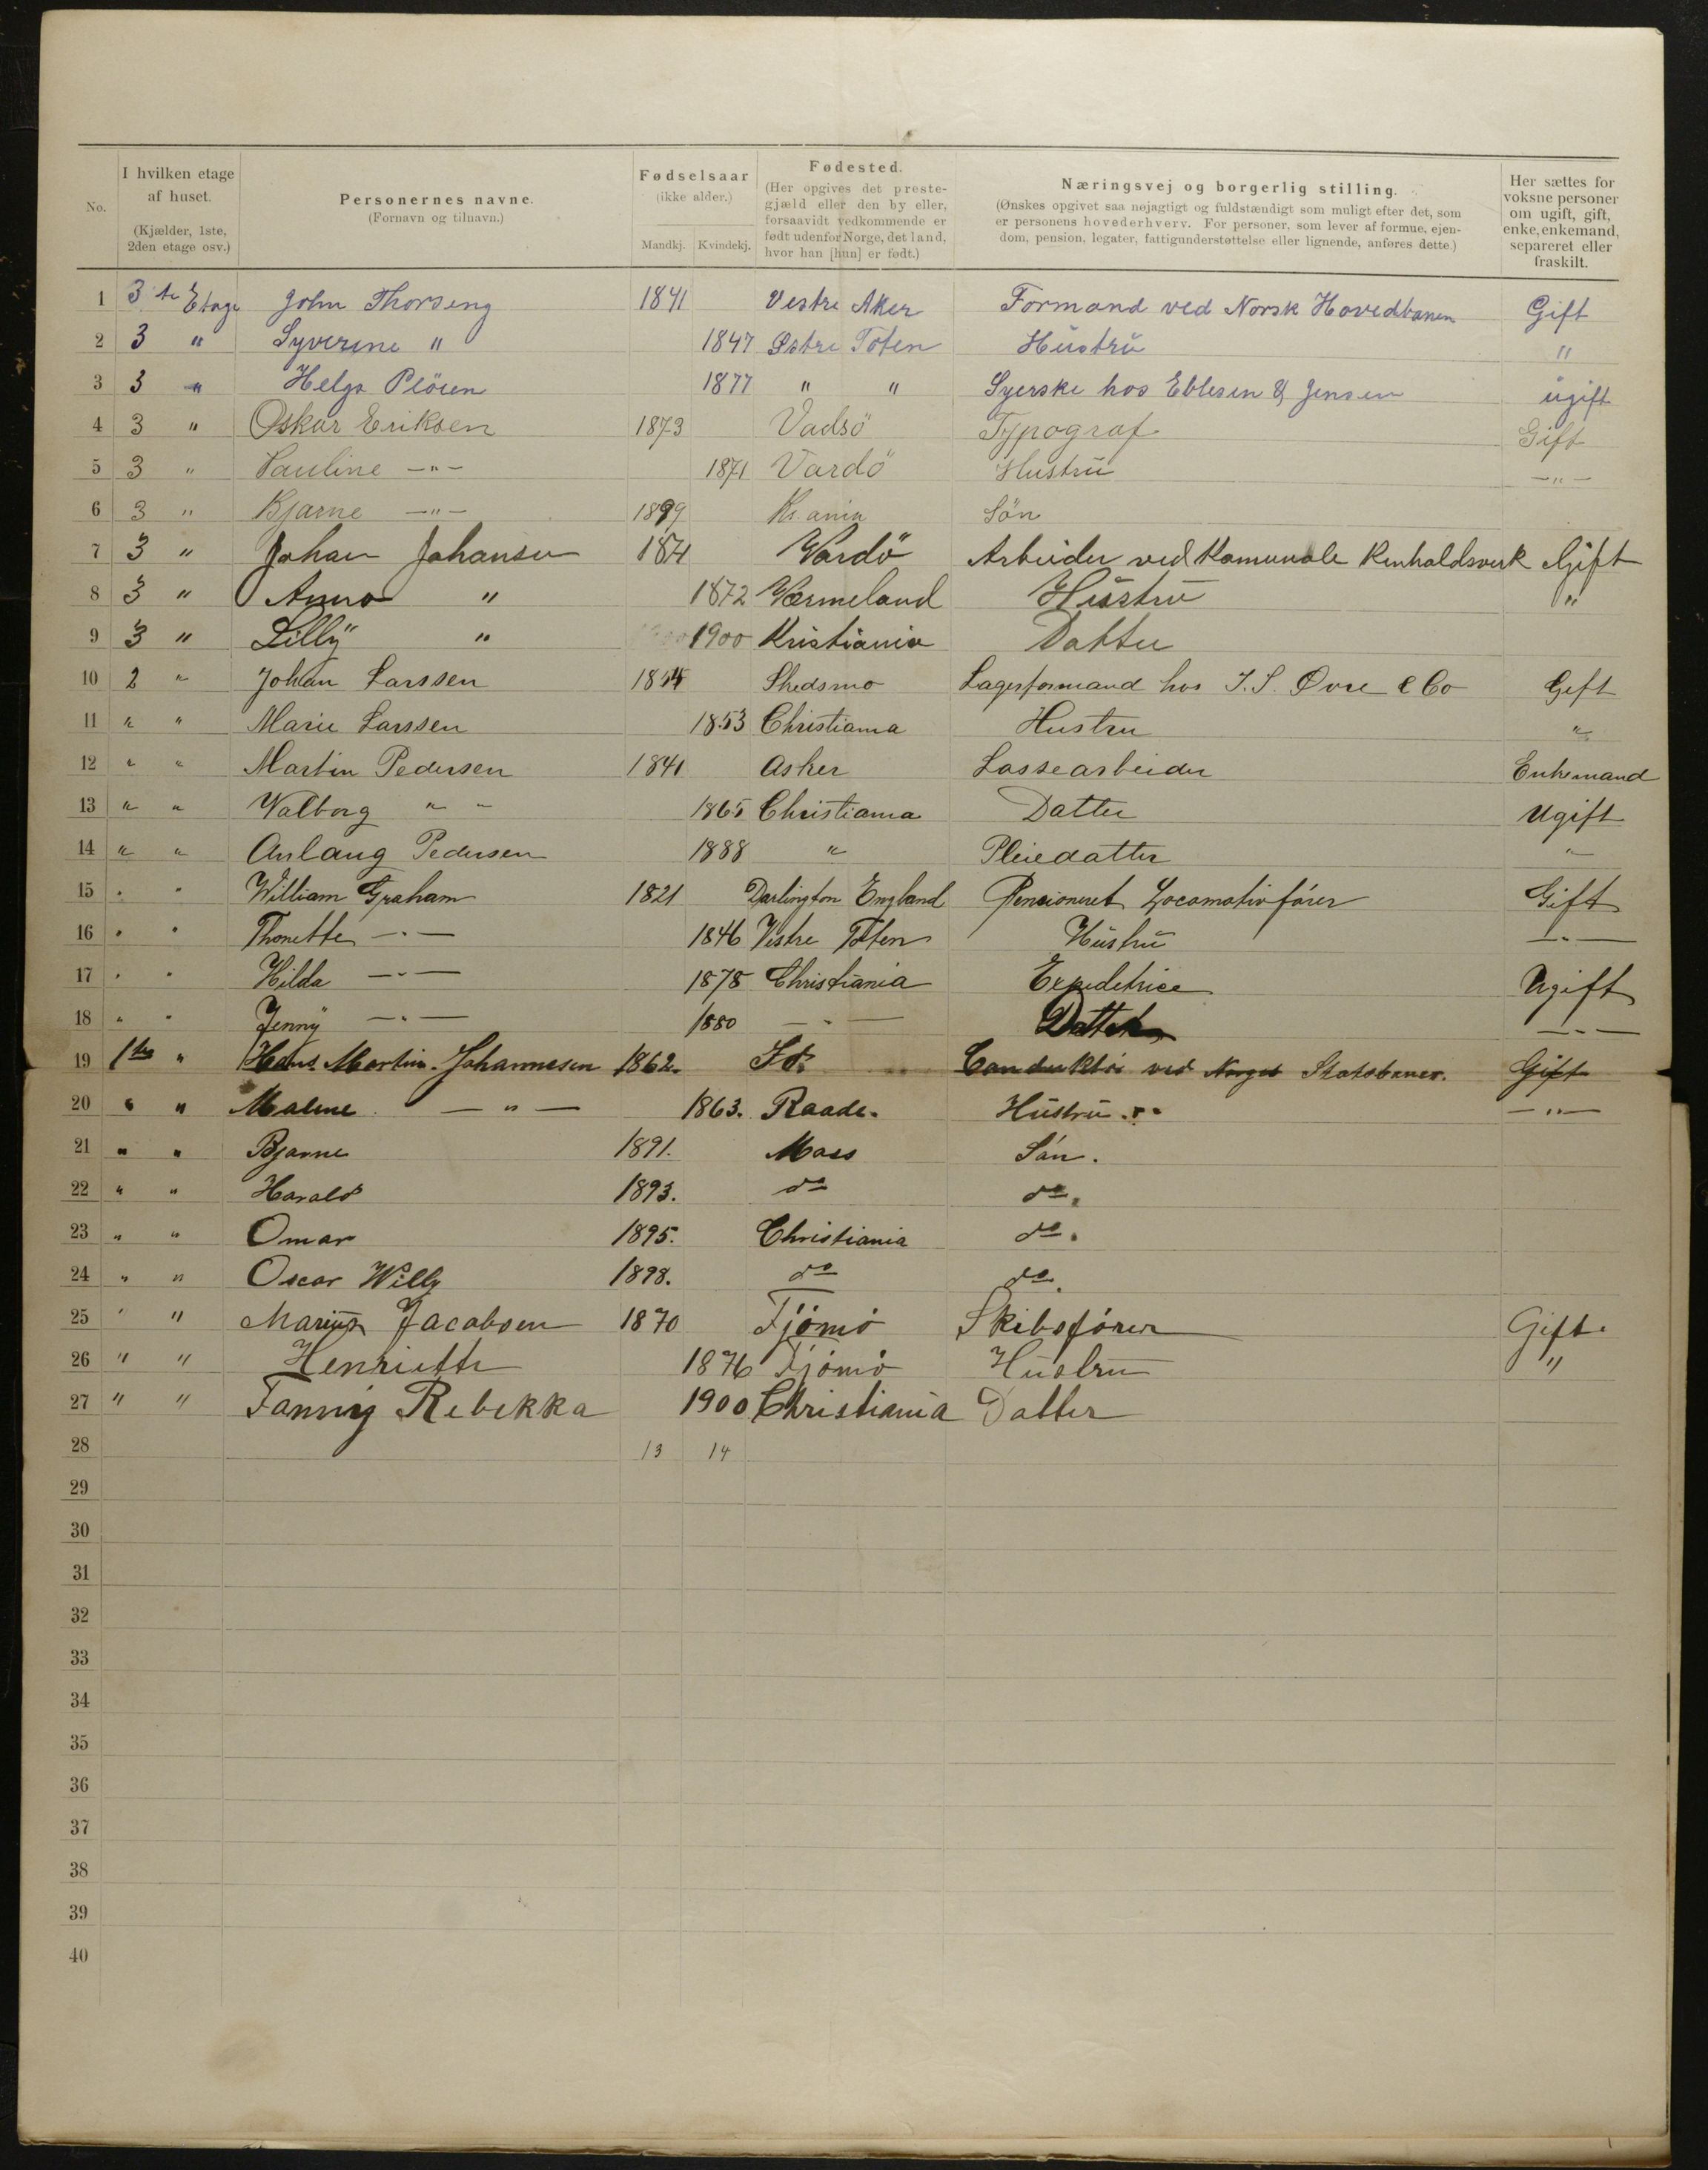 No. I hvilken etage af huset. (Kjælder, 1ste, 2den etage osv.) Personernes navne. (Fornavn og tilnavn.) Fødselsaar (ikke alder.) Mandkj. Kvindekj. Fødested. (Her opgives det prestegjæld eller den by eller, forsaavidt vedkommende er født udenfor Norge, det land, hvor han [hun] er født.) Næringsvej og borgerlig stilling. (Ønskes opgivet saa nøjagtigt og fuldstændigt som muligt efter det, som er personens hovederhverv. For personer, som lever af formue, ejendom, pension, legater, fattigunderstøttelse eller lignende, anføres dette.) Her sættes for voksne personer om ugift, gift, enke, enkemand, separeret eller fraskilt.
1 3 te Etage John Thorseng 1841 Vestre Aker Formand ved Norsk Hovedbanen Gift
2 3 " Syverine " 1847 Østre Toten Hustru "
3 3 " Helga Plöien 1877 " " Syerske hos Eblesen & Jensen ugift
4 3 " Oskar Eriksen 1873 Vadsö Typograf Gift
5 3 " Pauline —"— 1871 Vardö Hustru —"—
6 3 " Bjarne —"— 1899 Kr.ania Sön
7 3 " Johan Johansen 1871 Vardö Arbeider ved Komunale Renholdsverk Gift
8 3 " Anna " 1872 Vermeland Hustru "
9 3 " Lilly " 1900 Kristiania Datter
10 2 " Johan Larssen 1854 Skedsmo Lagerformand hos I. S. Øvre & Co Gift
11 " " Marie Larssen 1853 Christiania Hustru "
12 " " Martin Pedersen 1841 Asker Lossearbeider Enkemand
13 " " Walborg " " 1865 Christiania Datter Ugift
14 " " Anlaug Pedersen 1888 " Pleiedatter "
15 " " William Graham 1821 Darlington England Pensioneret Locomotivfører Gift
16 " " Thonette —"— 1846 Vestre Toten Hustru —"—
17 " " Hilda —"— 1878 Christiania Expeditrice Ugift
18 " " Jenny —"— 1880 —"— Datter —"—
19 1ste " Hans Martin Johannesen 1862. Id. Conduktör ved Norges Statsbaner. Gift
20 " " Malene —"— 1863. Raade. Hustru. —"—
21 " " Bjarne 1891. Moss Sön.
22 " " Harald 1893. do do.
23 " " Omar 1895. Christiania do.
24 " " Oscar Willy 1898. do do.
25 " " Marius Jacobsen 1870 Tjömö Skibsförer Gift.
26 " " Henriette 1876 Tjömö Hustru "
27 " " Fanny Rebekka 1900 Christiania Datter
28 13 14
29
30
31
32
33
34
35
36
37
38
39
40